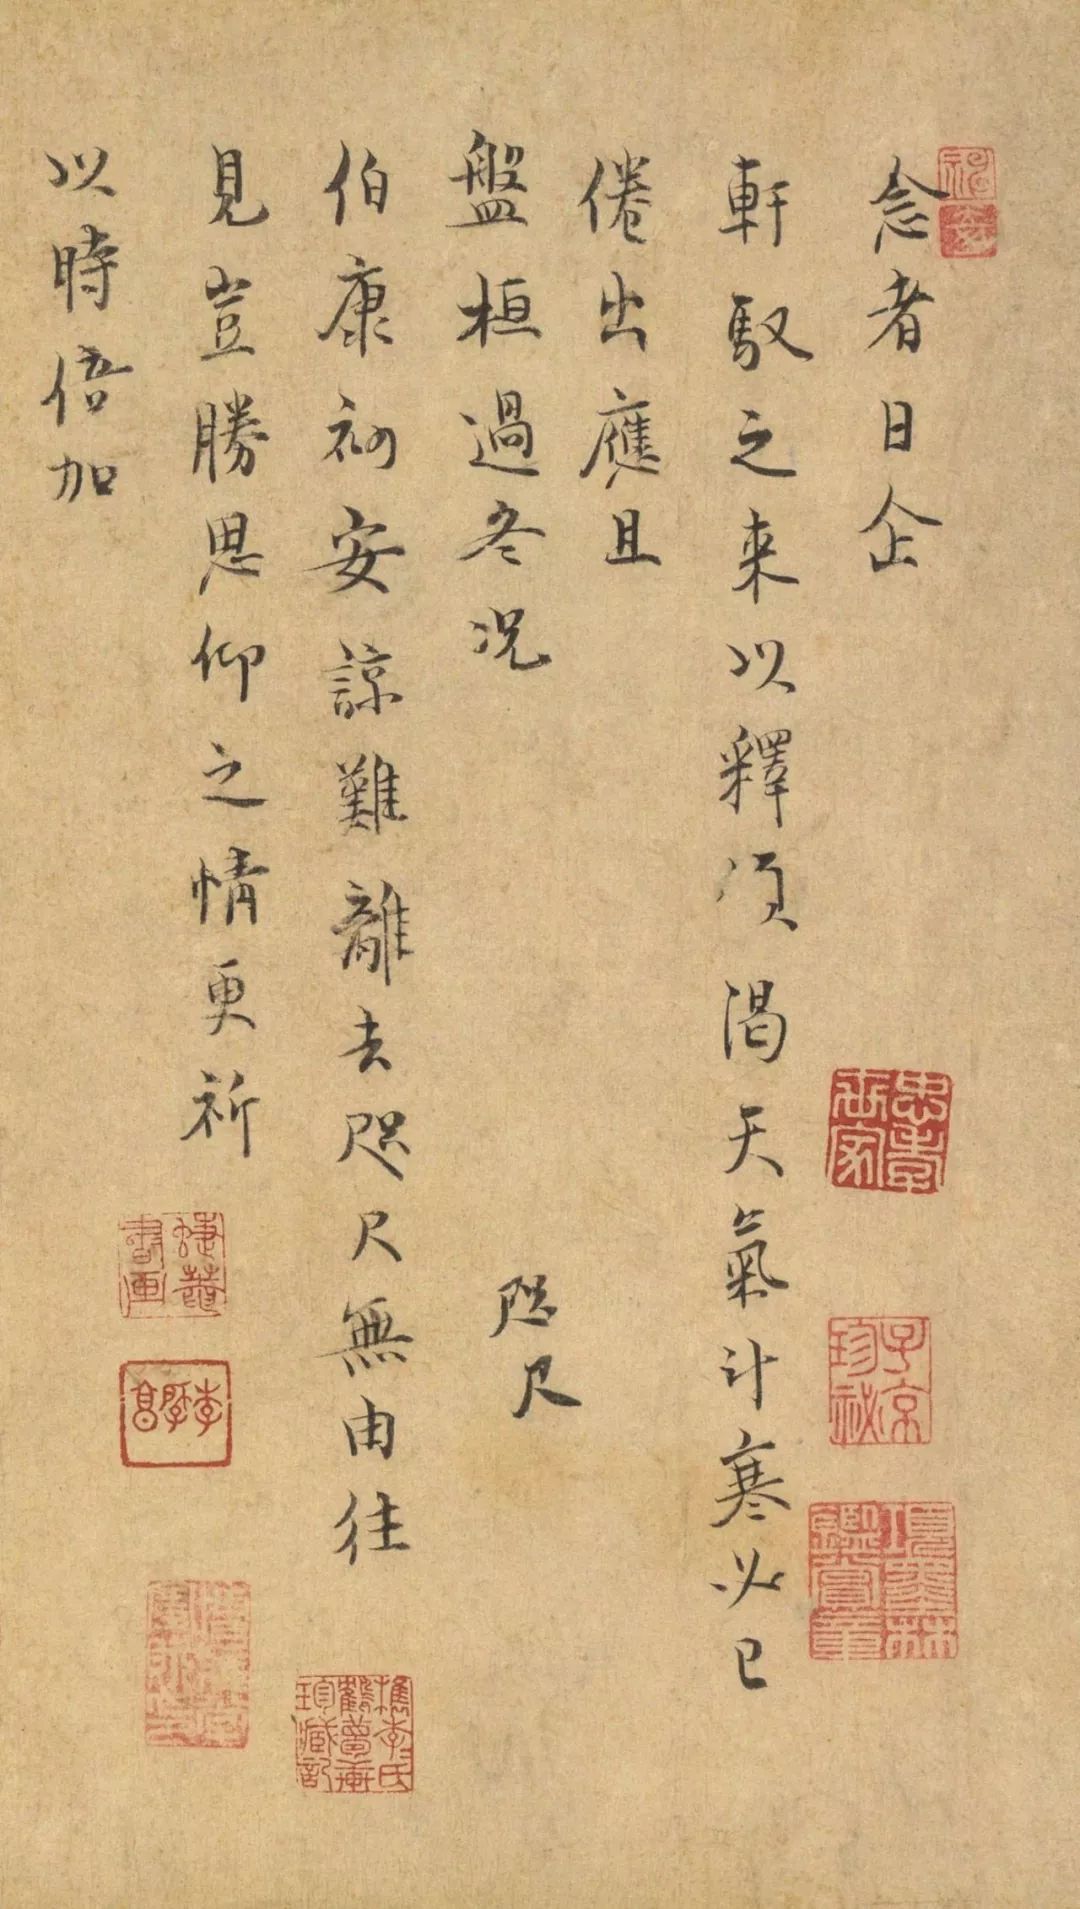 念者日企
軒馭之来以釋傾渴天氣計寒必已
倦出應且
盤桓過冬况
咫尺
伯康初安諒難離去咫尺無由往
見豈勝思仰之情更祈
以時倍加
子京珍秘
項墨林鑑賞章